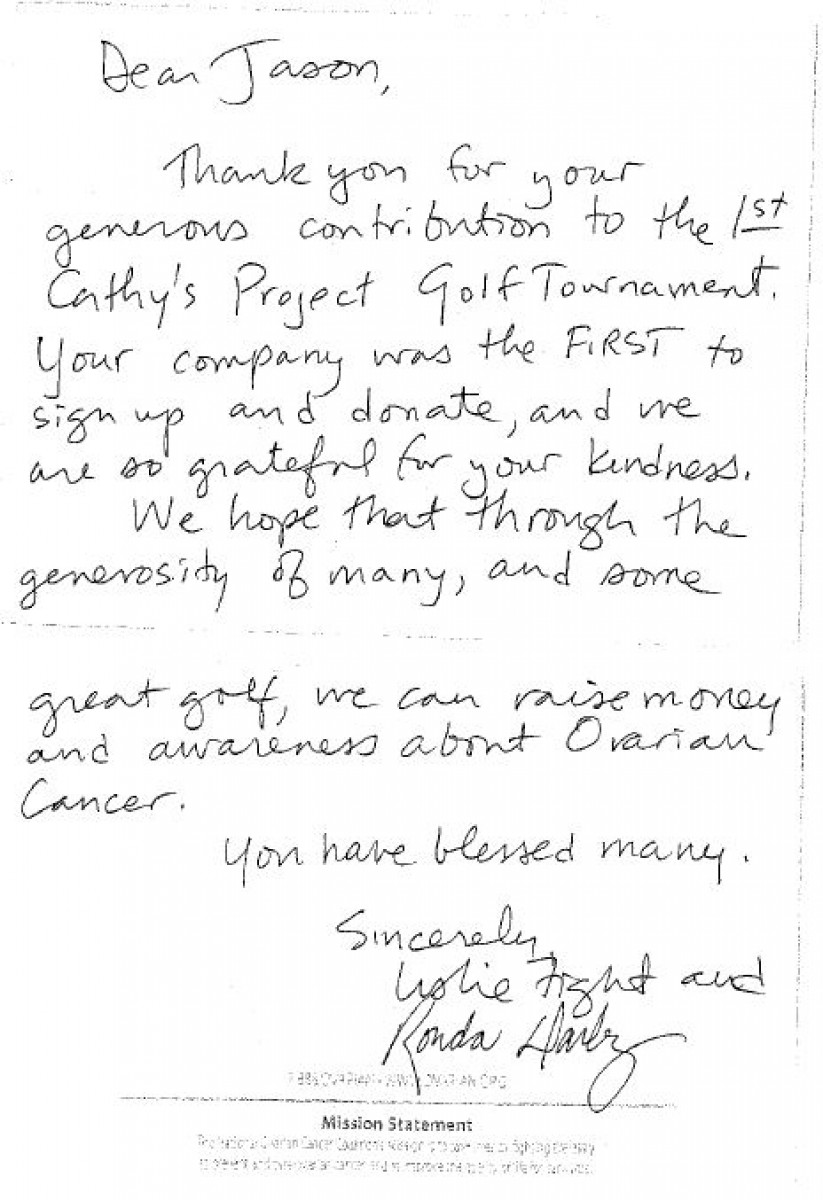 Dear Jason,
Thank you for your
generous contribution to the 1st
Cathy's Project Golf Tournament.
Your company was the FIRST to
sign up and donate, and we
are so grateful for your kindness.
We hope that through the
generosity of many, and some
great golf, we can raise money
and awareness about Ovarian
Cancer.
You have blessed many.
Sincerely,
Leslie Fight and
Ronda
Mission Statement
The National Ovarian Cancer